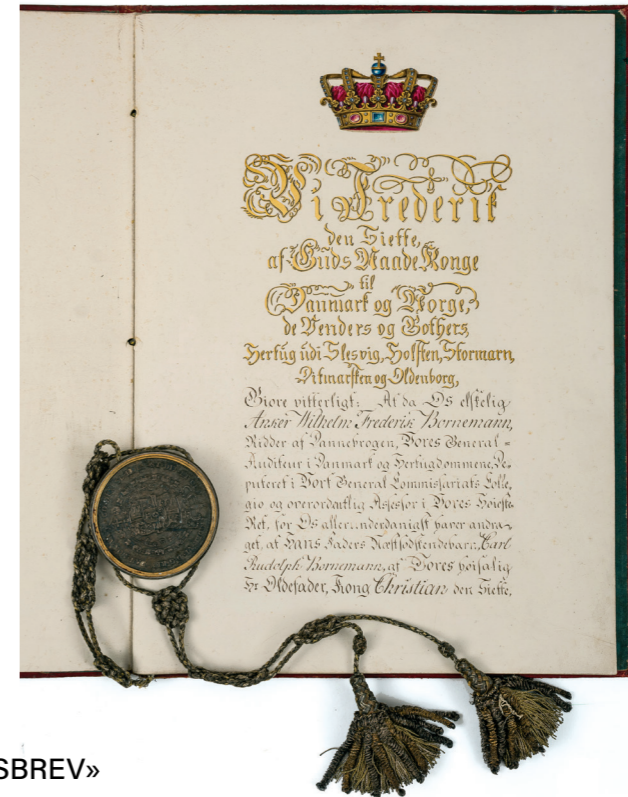 Vi Frederik
den Siette,
af Guds Naade Konge
til
Danmark og Norge,
de Venders og Gothers,
Hertug udi Slesvig, Holsten, Stormarn,
Ditmarsken og Oldenborg,
Giøre vitterligt: At da Os elskelig
Anker Wilhelm Frederik Bornemann,
Ridder af Dannebrogen, Vores General-
Auditeur i Danmark og Hertugdømmene, De-
puteret i Vort General Commissariats Colle-
gio og overordentlig Assessor i Vores Høieste-
Ret, for Os allerunderdanigst haver andra-
get, at Hans Faders Næstsødskendebarn, Carl
Rudolph Bornemann, af Vores høisalig
Hr Oldefader, Kong Christian den Siette,
SBREV»